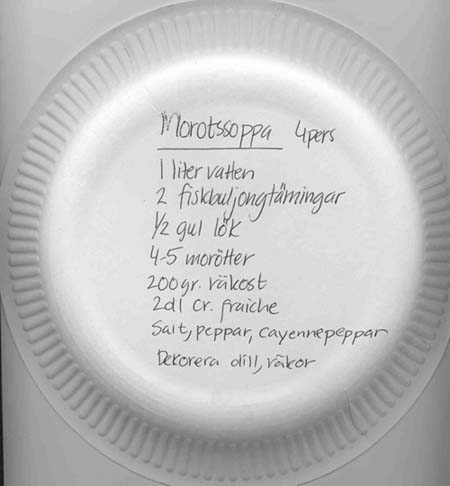 Morotssoppa 4pers
1 liter vatten
2 fiskbuljongtärningar
1/2 gul lök
4-5 morötter
200gr. räkost
2dl Cr. fraiche
Salt, peppar, cayennepeppar
Dekorera dill, räkor